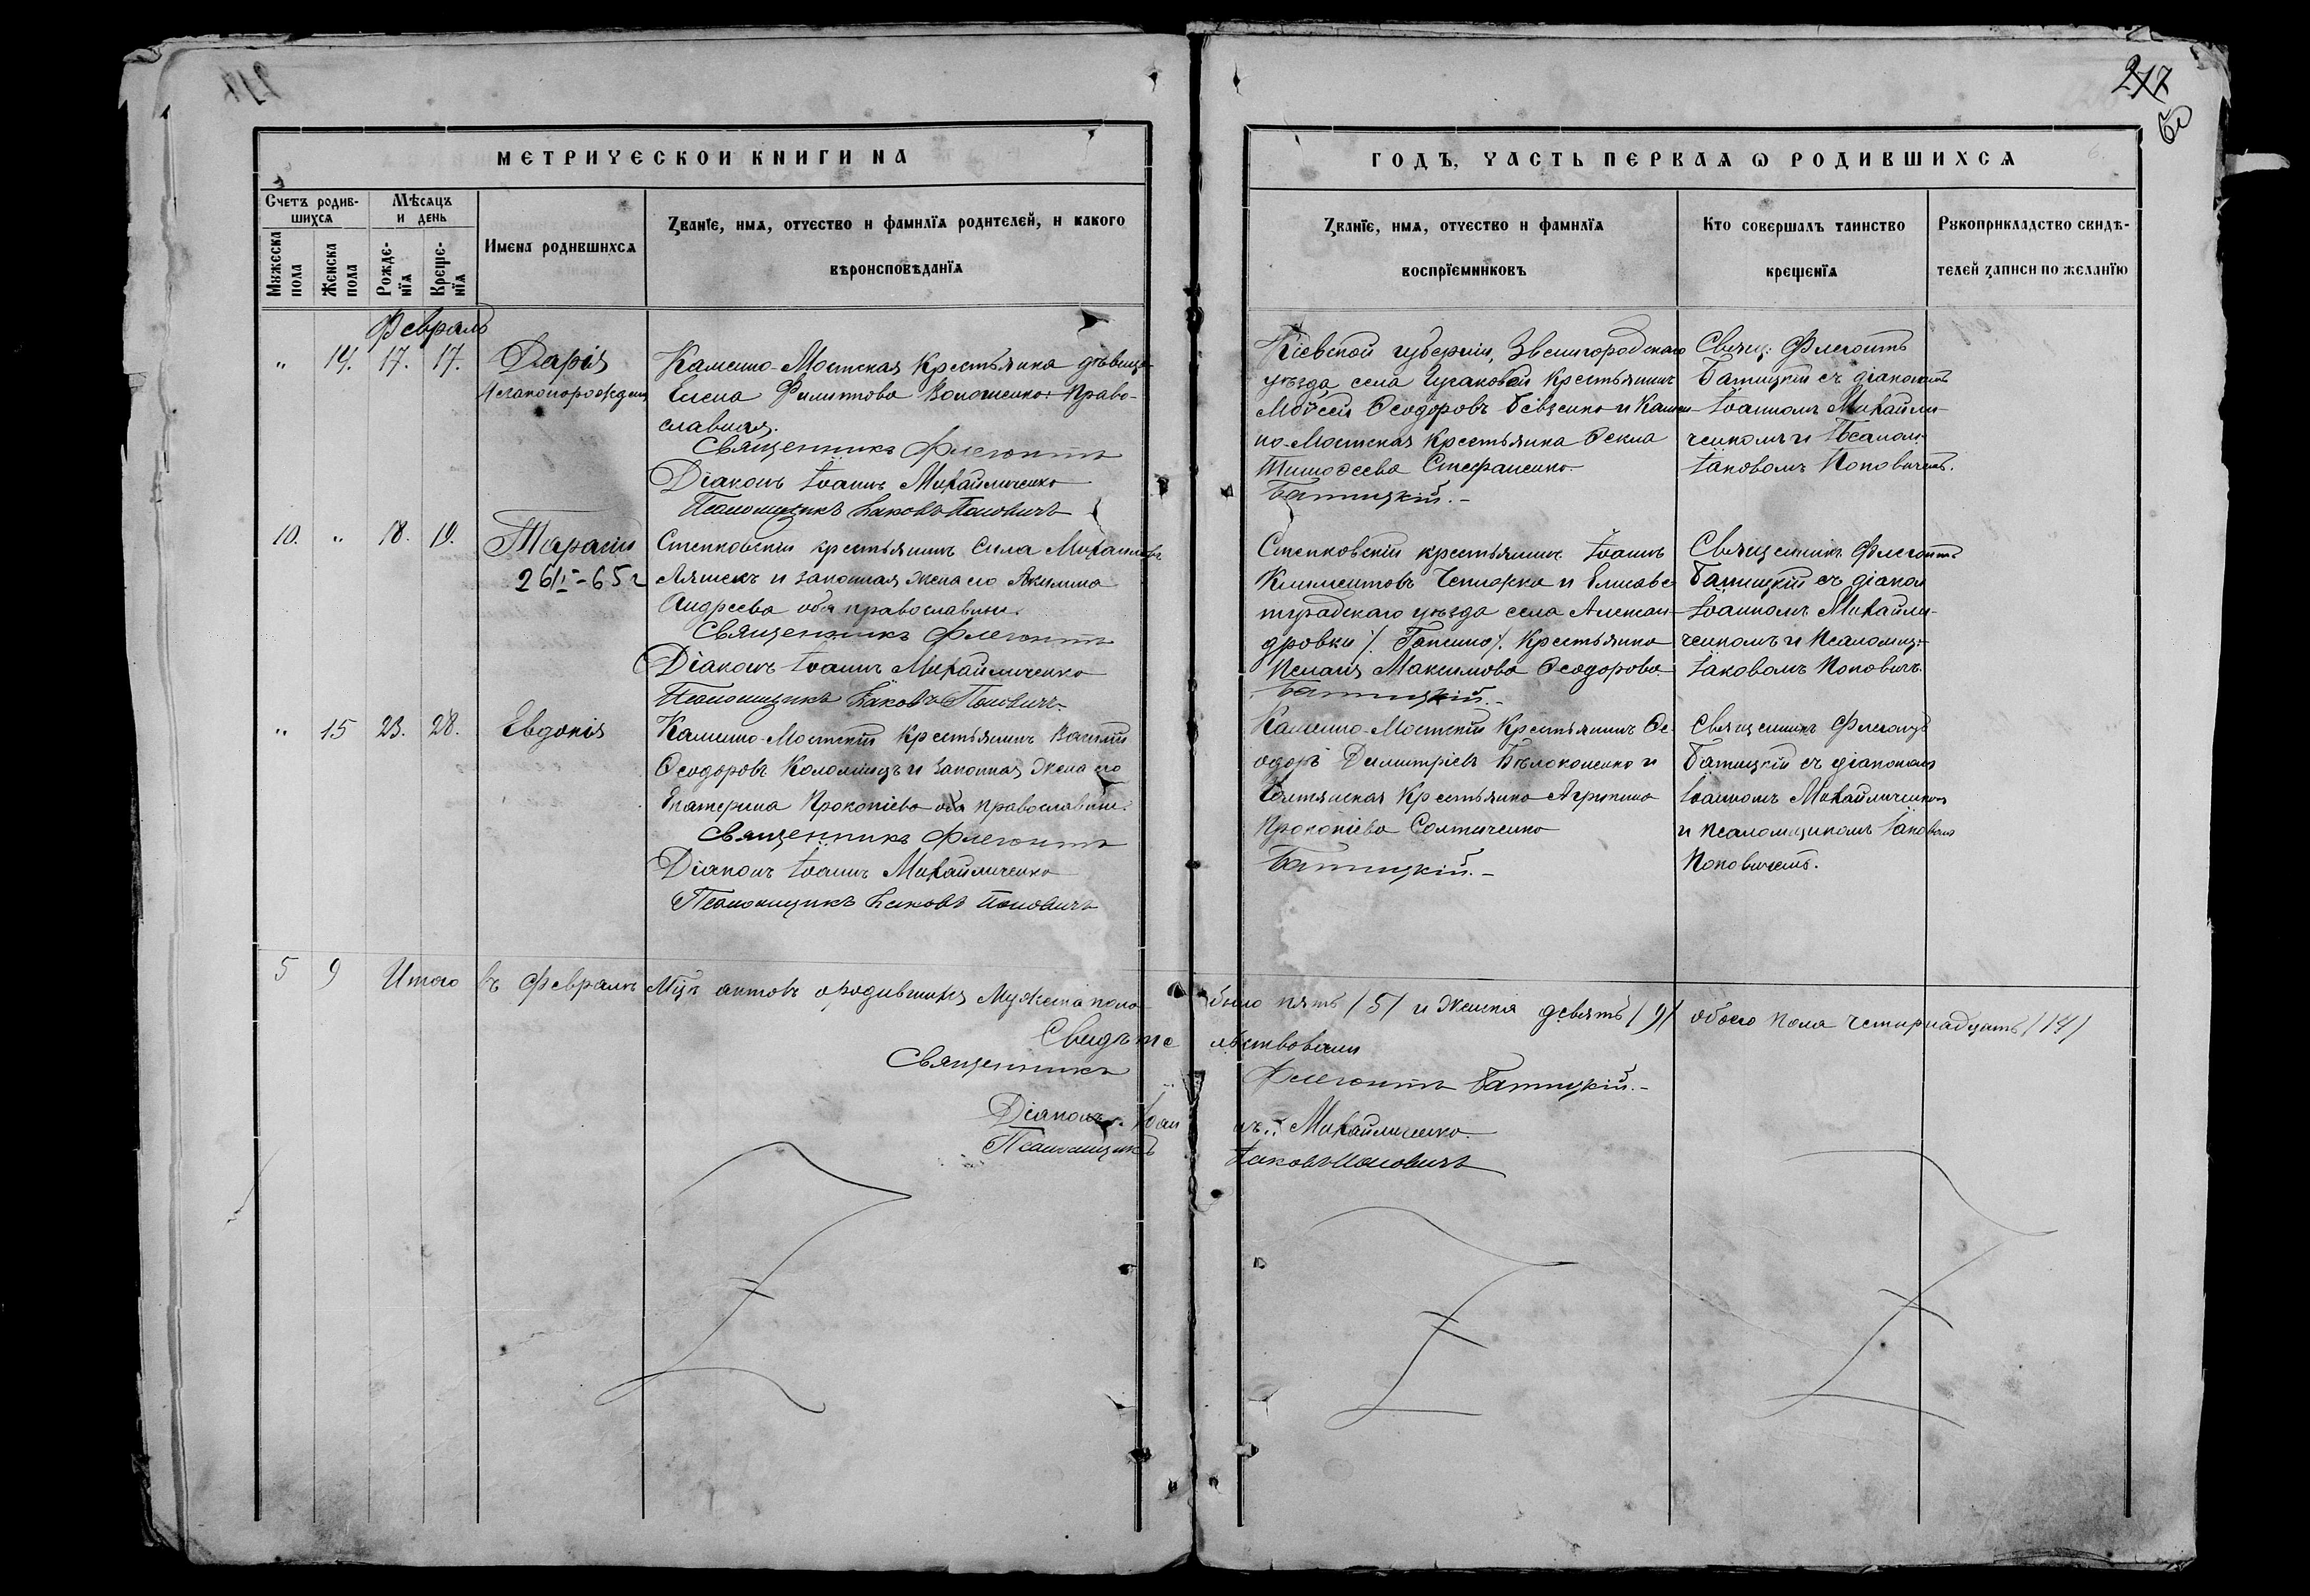 277
60
МЕТРИЧЕСКОЙ КНИГИ НА
ГОДЪ, ЧАСТЬ ПЕРВАЯ Ѡ РОДИВШИХСЯ
Счетъ родив-
шихся
Мѣсяцъ
и день
Мужеска пола
Женска пола
Рожде-
нїя
Креще-
нїя
Имена родившихся
Званїе, имя, отчество и фамилїя родителей, и какого
вѣроисповѣданїя
Званїе, имя, отчество и фамилїя
воспрїемниковъ
Кто совершалъ таинство
крещенїя
Рукоприкладство свидѣ-
телей записи по желанїю
Февраль
" 14. 17. 17. Дарія
Незаконорожден
Камено-Мостская Крестьянка дѣвица
Елена Филиппова Волошенко: Право-
славная.
Священникъ Флегонтъ
Діаконъ Іоаннъ Михайличенко
Псаломщикъ Іаковъ Поповичъ
Кіевской губерніи, Звенигородскаго
уѣзда села Гусаковой Крестьянинъ
Мойсей Ѳеодоровъ Бевзенко и Камен-
но-Мостская Крестьянка Ѳекла
Тимоѳеева Стефаненко.
Батицкій.-
Свящ: Флегонтъ
Батицкій съ діакономъ
Іоанномъ Михайли-
ченкомъ и Псалом.
Іаковомъ Поповичемъ.
10. " 18. 19. Тарасій
26/I-65 г
Степковскій крестьянинъ Сила Михаиловъ
Ляшекъ и законная жена его Акилина
Андреева оба православны.
Священникъ Флегонтъ
Діаконъ Іоаннъ Михайличенко
Псаломщикъ Іаковъ Поповичъ
Степковскій крестьянинъ Іоаннъ
Климентовъ Чепижка и Елисаве-
тградскаго уѣзда села Алексан-
дровки /. Ганино /. Крестьянка
Пелагія Максимова Ѳеодорова.
Батицкій.-
Священникъ Флегонтъ
Батицкій съ діакон
Іоанномъ Михайли-
ченкомъ и Псаломщ.
Іаковомъ Поповичъ.
" 15 23. 28. Евдокія
Камено-Мостскій Крестьянинъ Василій
Ѳеодоровъ Коломіецъ и законная жена его
Екатерина Прокопіева оба православны.
Священникъ Флегонтъ
Діаконъ Іоаннъ Михайличенко
Псаломщикъ Іаковъ Поповичъ
Камено-Мостскій Крестьянинъ Ѳе-
одоръ Димитріевъ Бѣлоконенко и
Крестьянка Агрипина
Прокопіева
Батицкій.-
Священникъ Флегонтъ
Батицкій съ діакономъ
Іоанномъ Михайличенкомъ
и псаломщикомъ Іаковомъ
Поповичемъ.
5 9 Итого въ Февралѣ Мцѣ актовъ о родившихся Мужеска пола было пять /5/ и Женска девять /9/ обоего пола четырнадцать /14/
Свидѣтельствовали
Священникъ Флегонтъ Батицкій.-
Діаконъ Іоаннъ Михайличенко.
Псаломщикъ Іаковъ Поповичъ